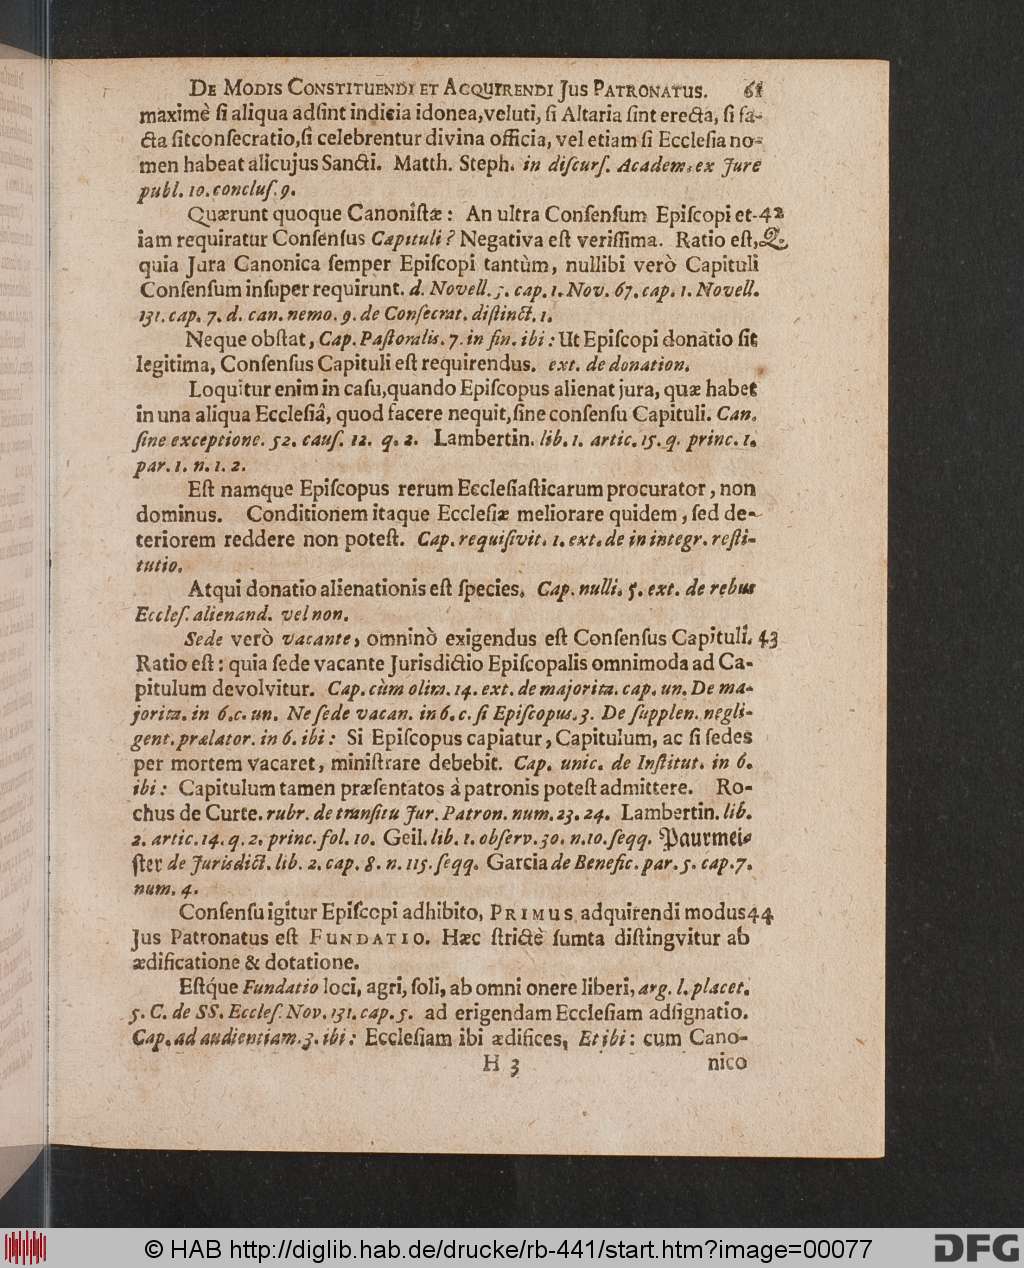 De Modis Constituendi et Acquirendi Jus Patronatus. 61
maximè ſi aliqua adſint indicia idonea, veluti, ſi Altaria ſint erecta, ſi fa-
cta ſit conſecratio, ſi celebrentur divina officia, vel etiam ſi Eccleſia no-
men habeat alicujus Sancti. Matth. Steph. in diſcurſ. Academ. ex Jure
publ. 10. concluſ. 9.
Quærunt quoque Canoniſtæ: An ultra Conſenſum Epiſcopi et- 42
iam requiratur Conſenſus Capituli? Negativa eſt veriſſima. Ratio eſt, Q.
quia Jura Canonica ſemper Epiſcopi tantùm, nullibi verò Capituli
Conſenſum inſuper requirunt. d. Novell. 5. cap. 1. Nov. 67. cap. 1. Novell.
131. cap. 7. d. can. nemo. 9. de Conſecrat. diſtinct. 1.
Neque obſtat, Cap. Paſtoralis. 7. in fin. ibi: Ut Epiſcopi donatio ſit
legitima, Conſenſus Capituli eſt requirendus. ext. de donation.
Loquitur enim in caſu, quando Epiſcopus alienat jura, quæ habet
in una aliqua Eccleſiâ, quod facere nequit, ſine conſenſu Capituli. Can.
ſine exceptione. 52. cauſ. 12. q. 2. Lambertin. lib. 1. artic. 15. q. princ. 1.
par. 1. n. 1. 2.
Eſt namque Epiſcopus rerum Eccleſiaſticarum procurator, non
dominus. Conditionem itaque Eccleſiæ meliorare quidem, ſed de-
teriorem reddere non poteſt. Cap. requiſivit. 1. ext. de in integr. reſti-
tutio.
Atqui donatio alienationis eſt ſpecies. Cap. nulli. 5. ext. de rebus
Eccleſ. alienand. vel non.
Sede verò vacante, omninò exigendus eſt Conſenſus Capituli. 43
Ratio eſt: quia ſede vacante Jurisdictio Epiſcopalis omnimoda ad Ca-
pitulum devolvitur. Cap. cùm olim. 14. ext. de majorita. cap. un. De ma-
jorita. in 6. c. un. Ne ſede vacan. in 6. c. ſi Epiſcopus. 3. De ſupplen. negli-
gent. prælator. in 6. ibi: Si Epiſcopus capiatur, Capitulum, ac ſi ſedes
per mortem vacaret, miniſtrare debebit. Cap. unic. de Inſtitut. in 6.
ibi: Capitulum tamen præſentatos à patronis poteſt admittere. Ro-
chus de Curte. rubr. de tranſitu Jur. Patron. num. 23. 24. Lambertin. lib.
2. artic. 14. q. 2. princ. fol. 10. Geil. lib. 1. obſerv. 30. n. 10. ſeqq. Paurmei-
ſter de Jurisdict. lib. 2. cap. 8. n. 115. ſeqq. Garcia de Benefic. par. 5. cap. 7.
num. 4.
Conſenſu igitur Epiſcopi adhibito, Primus adquirendi modus 44
Jus Patronatus eſt Fundatio. Hæc ſtrictè ſumta diſtingvitur ab
ædificatione & dotatione.
Eſtq́ue Fundatio loci, agri, ſoli, ab omni onere liberi, arg. l. placet.
5. C. de SS. Eccleſ. Nov. 131. cap. 5. ad erigendam Eccleſiam adſignatio.
Cap. ad audientiam. 3. ibi: Eccleſiam ibi ædifices, Et ibi: cum Cano-
H 3 nico
© HAB http://diglib.hab.de/drucke/rb-441/start.htm?image=00077
DFG